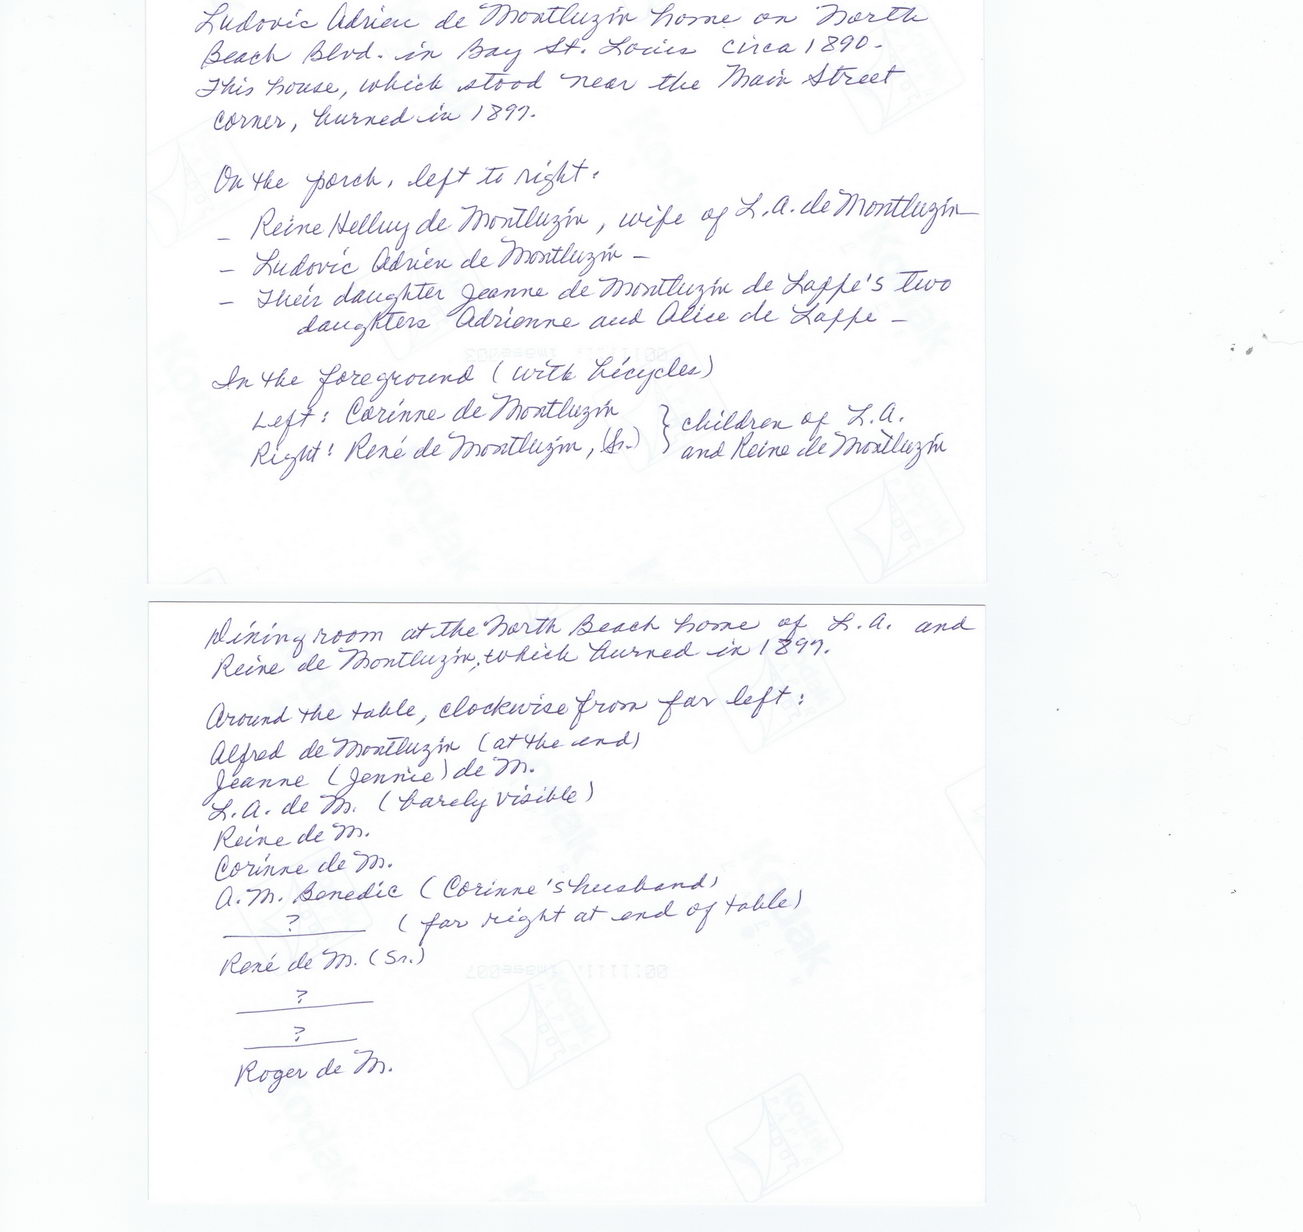 Ludovic Adrien de Montluzin home on North
Beach Blvd. in Bay St. Louis circa 1890.
This house, which stood near the Main Street
corner, burned in 1897.
On the porch, left to right:
- Reine Helluy de Montluzin, wife of L.A. de Montluzin
- Ludovic Adrien de Montluzin -
- Their daughter Jeanne de Montluzin de Lappe's two
daughters Adrienne and Alice de Lappe -
In the foreground (with bicycles)
Left: Corinne de Montluzin } children of L.A.
Right: René de Montluzin, (Sr.) and Reine de Montluzin
Dining room at the North Beach home of L.A. and
Reine de Montluzin, which burned in 1897.
Around the table, clockwise from far left:
Alfred de Montluzin (at the end)
Jeanne (Jennie) de M.
L.A. de M. (barely visible)
Reine de M.
Corinne de M.
A.M. Benedic (Corinne's husband)
? (far right at end of table)
René de M. (Sr.)
?
?
Roger de M.